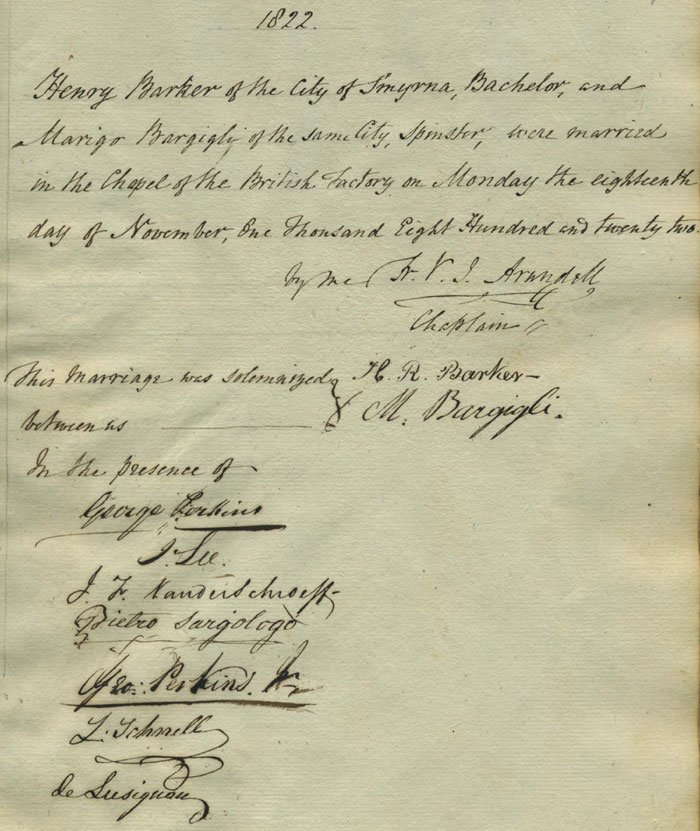 1822.
Henry Barker of the City of Smyrna, Bachelor, and
Marigo Bargigli of the same City, Spinster, were married
in the Chapel of the British Factory on Monday the eighteenth
day of November, One Thousand Eight Hundred and twenty two.
by me F. V. J. Arundell
Chaplain
This Marriage was solemnized H. R. Barker
between us M. Bargigli.
In the presence of
George Perkins
J. Lee.
J. F. Vanderschroeff
Pietro Sargologo
Geo: Perkins Jr
L. Schnell
de Lusignan